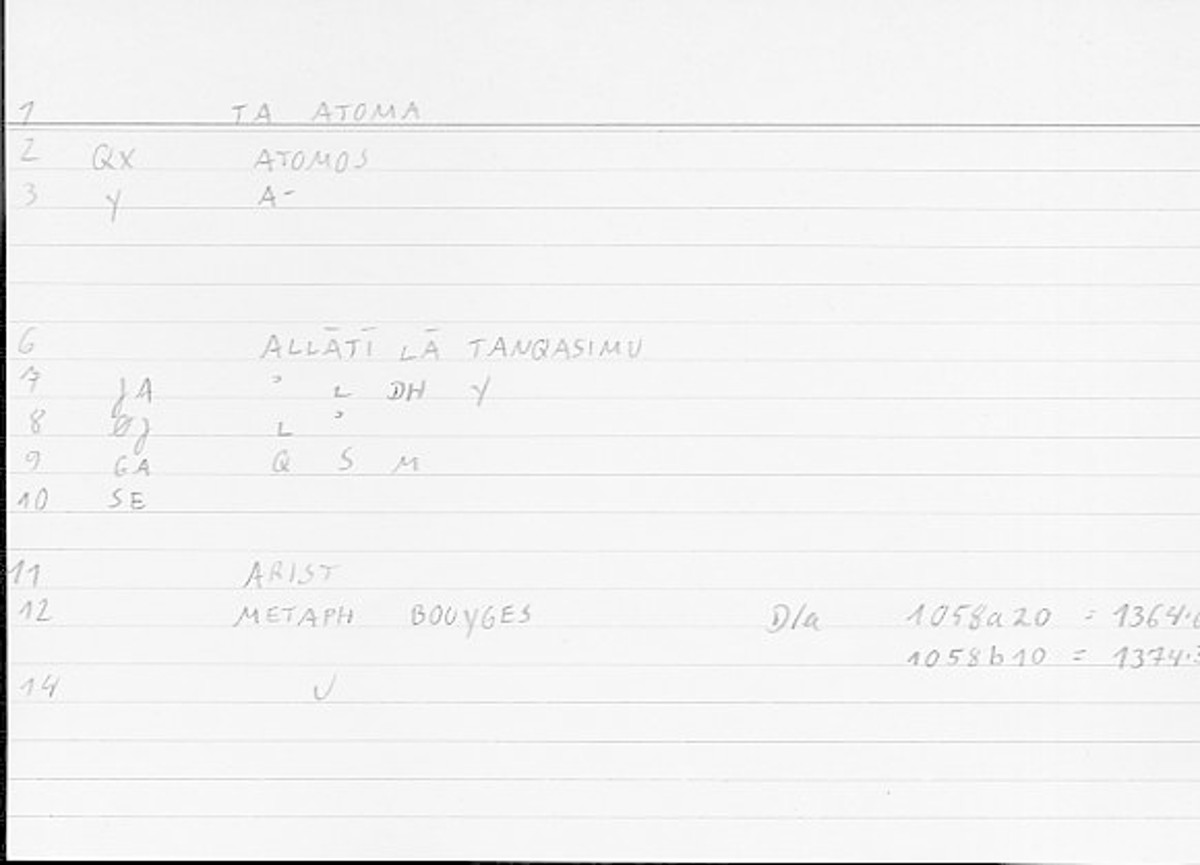 1 TA ATOMA
2 QX ATOMOS
3 Y A-
6 ALLĀTĪ LĀ TANQASIMU
7 JA ʾ L DH Y
8 ØJ L ʾ
9 GA Q S M
10 SE
11 ARIST
12 METAPH BOUYGES D/a 1058a20 = 1364.
1058b10 = 1374.3
14 U